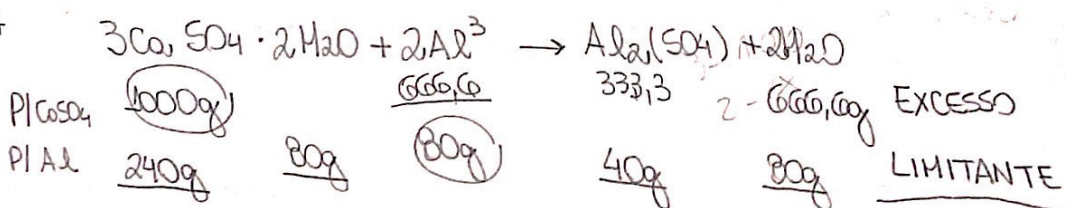 3Ca SO4 · 2H2O + 2Al³ → Al2(SO4) + 2H2O
P/CaSO4 1000g 666,6 333,3 2 - 666,6g EXCESSO
P/Al 240g 80g 80g 40g 80g LIMITANTE